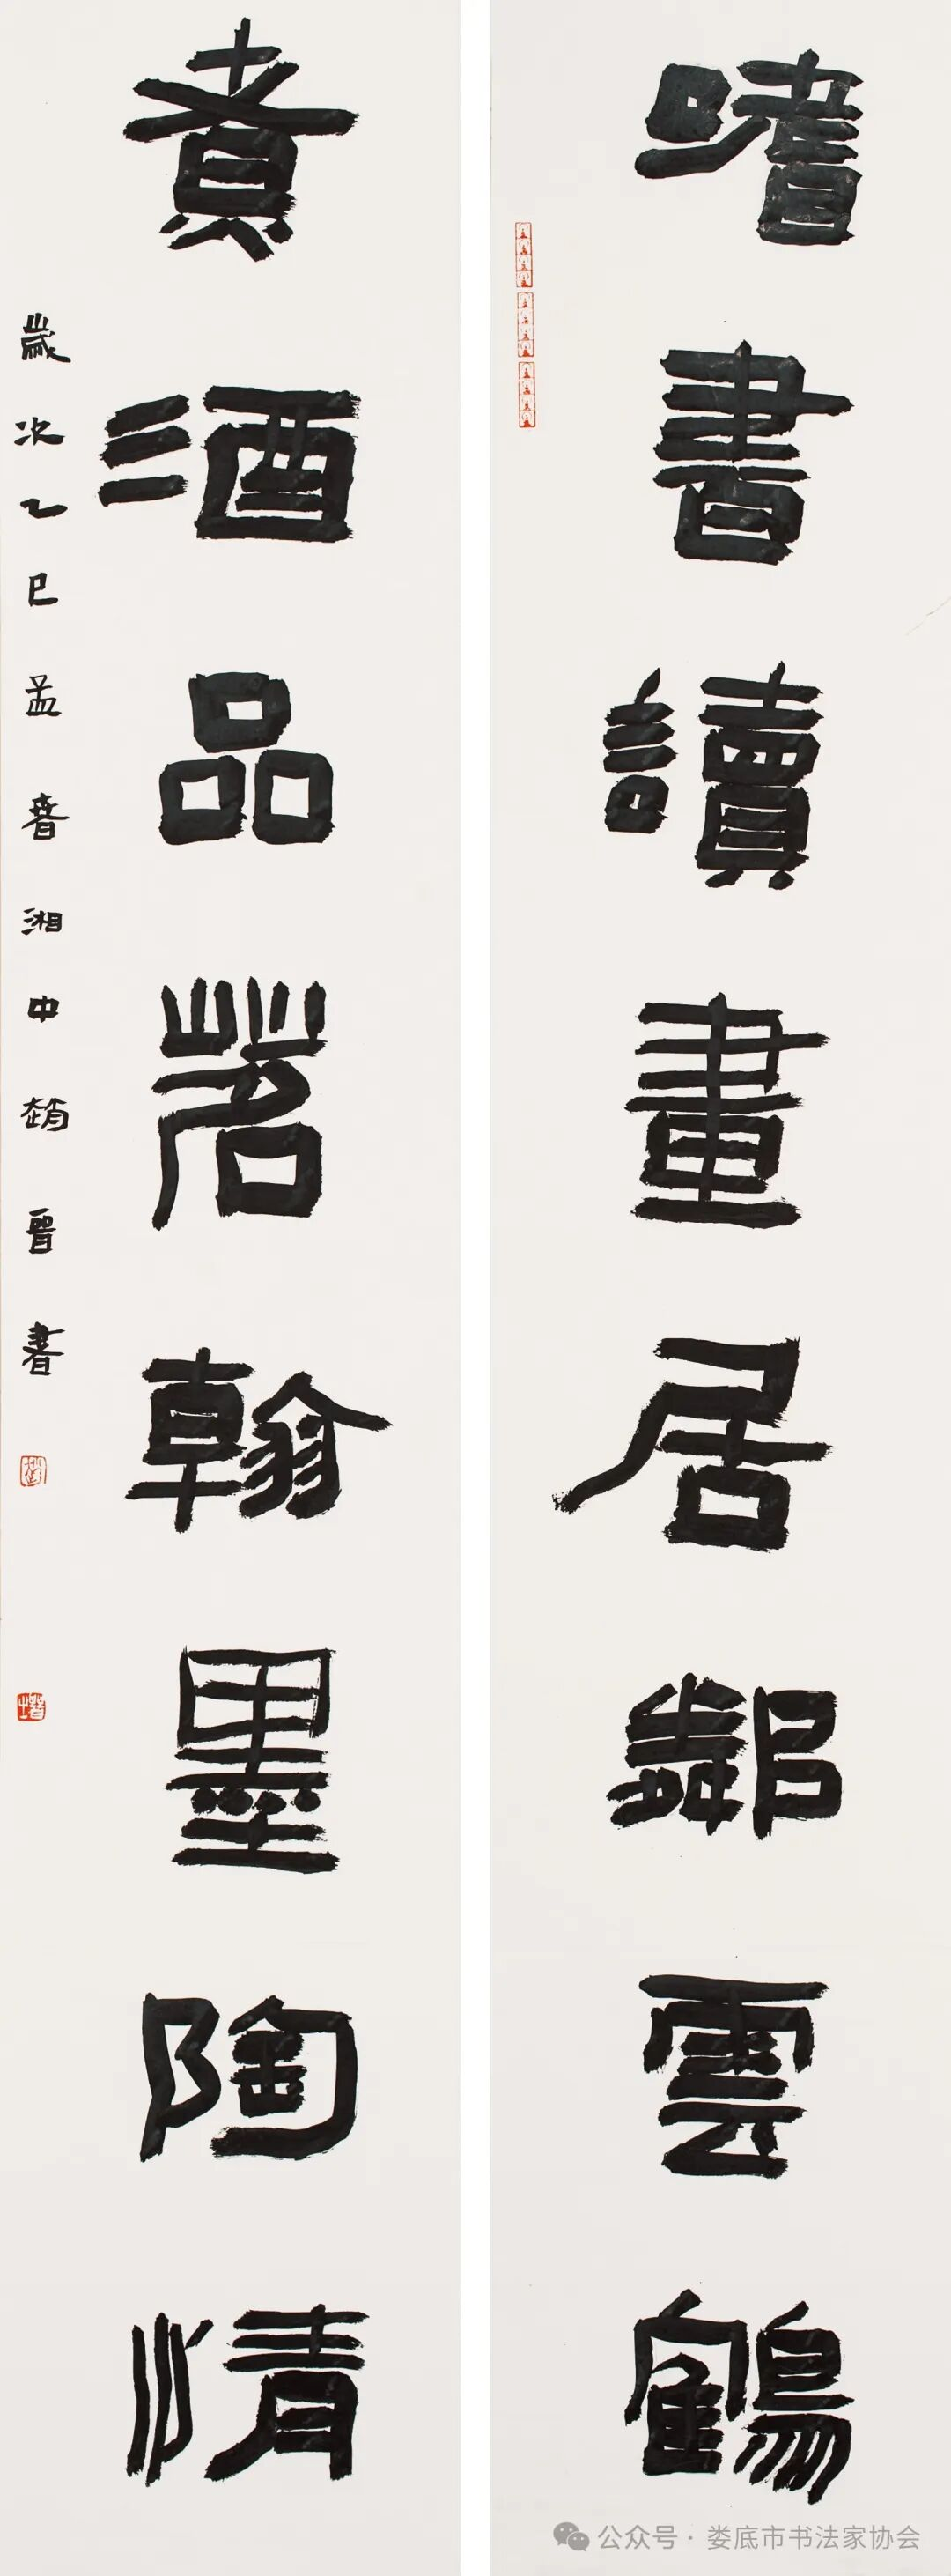 嗜書讀畫居鄰雲鶴
煮酒品茗翰墨陶情
歲次乙巳孟春湘中趙晉書
公众号 · 娄底市书法家协会